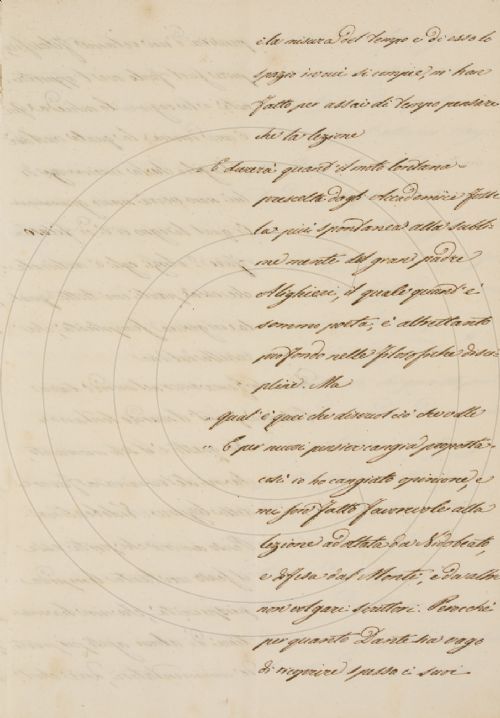 e la misura del tempo e di esso lo
spazio in cui si compie, m' han
fatto per assai di tempo pensare
che la lezione
E durerà quant' il moto lontana
prescelta dagli Accademici fosse
la più spontanea alla subli-
me mente del gran padre
Alighieri, il quale quant' è
sommo poeta, è altrettanto
profondo nelle filosofiche disci-
pline. Ma
qual è quei che disvuol ciò che volle
E per nuovi pensier cangia proposta
così io ho cangiato opinione, e
mi son fatto favorevole alla
lezione adottata da Nidobeato,
e difesa dal Monti, e da altri
non volgari scrittori. Perocchè
per quanto Dante sia vago
di ricoprire spesso i suoi